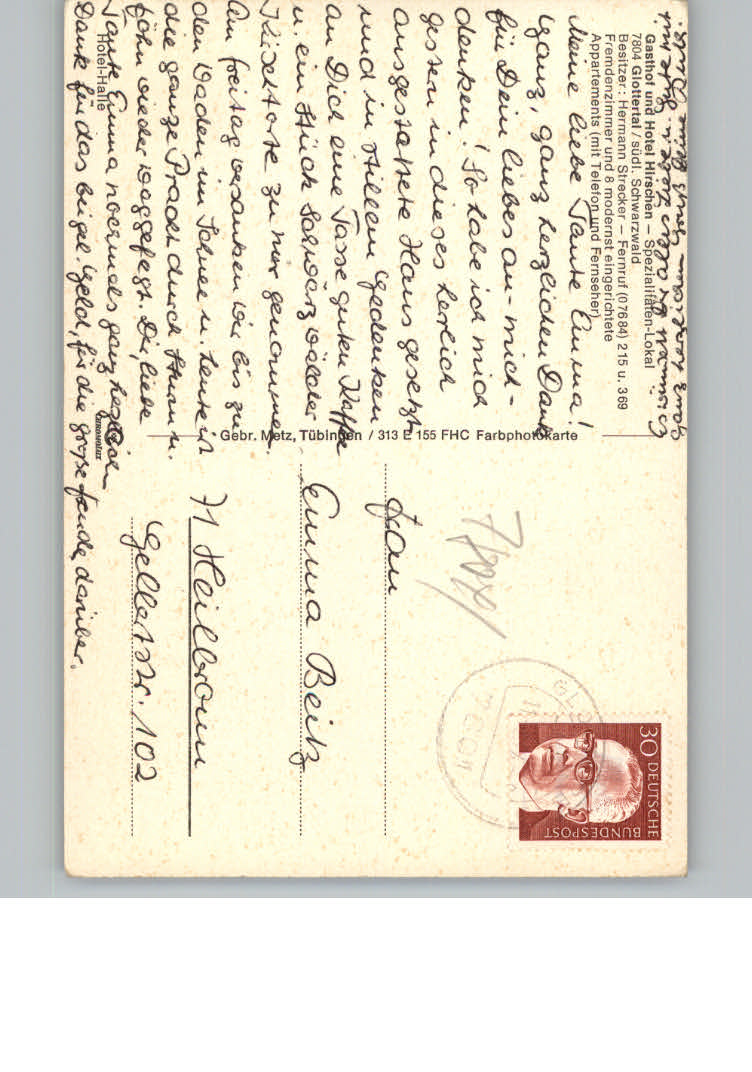 Gasthof und Hotel Hirschen – Spezialitäten-Lokal
7804 Glottertal / südl. Schwarzwald
Besitzer: Hermann Strecker – Fernruf (0 76 84) 215 u. 369
Fremdenzimmer und 8 modernst eingerichtete
Appartements (mit Telefon und Fernseher)
Meine liebe Tante Emma!
Ganz, ganz herzlichen Dank
für Dein liebes an-mich-
denken! So habe ich mich
gestern in dieses herrlich
ausgestattete Haus gesetzt
und in stillem Gedenken
an Dich eine Tasse guten Kaffee
u. ein Stück Schwarzwälder
Kirschtorte zu mir genommen.
Am Freitag versanken wir bis zu
den Waden im Schnee u. heute ist
die ganze Pracht durch Sturm u.
Föhn wieder weggefegt. Dir, liebe
Tante Emma nochmals ganz herzlichen
Dank für das Bügel-Geld, für die große Freude darüber.
Hotel-Halle
Gebr. Metz, Tübingen / 313 E 155 FHC Farbphotokarte
Frau
Emma Beitz
71 Heilbronn
Gellertstr. 102
30 DEUTSCHE
BUNDESPOST